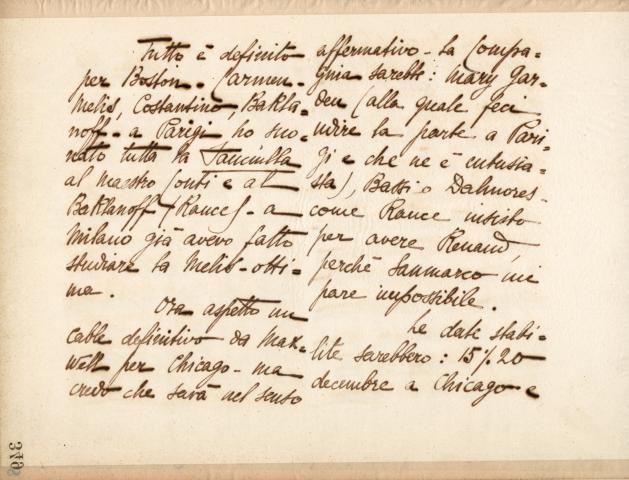 Tutto è definito
per Boston. Carmen-
Melis, Costantino, Bakla=
noff - a Parigi ho suo=
nato tutta la Fanciulla
al maestro Conti e al
Baklanoff (Rance) - a
Milano già avevo fatto
studiare la Melis - otti=
ma.
Ora aspetto un
cable definitivo da Max=
well per Chicago - ma
credo che sarà nel senso
affermativo - La Compa=
gnia sarebbe: Mary Gar=
den (alla quale feci
udire la parte a Pari=
gi e che ne è entusia=
sta), Bassi o Dalmores-
come Rance insisto
per avere Renaud,
perchè Sanmarco mi
pare impossibile.
Le date stabi=
lite sarebbero: 15%20
decembre a Chicago e
349